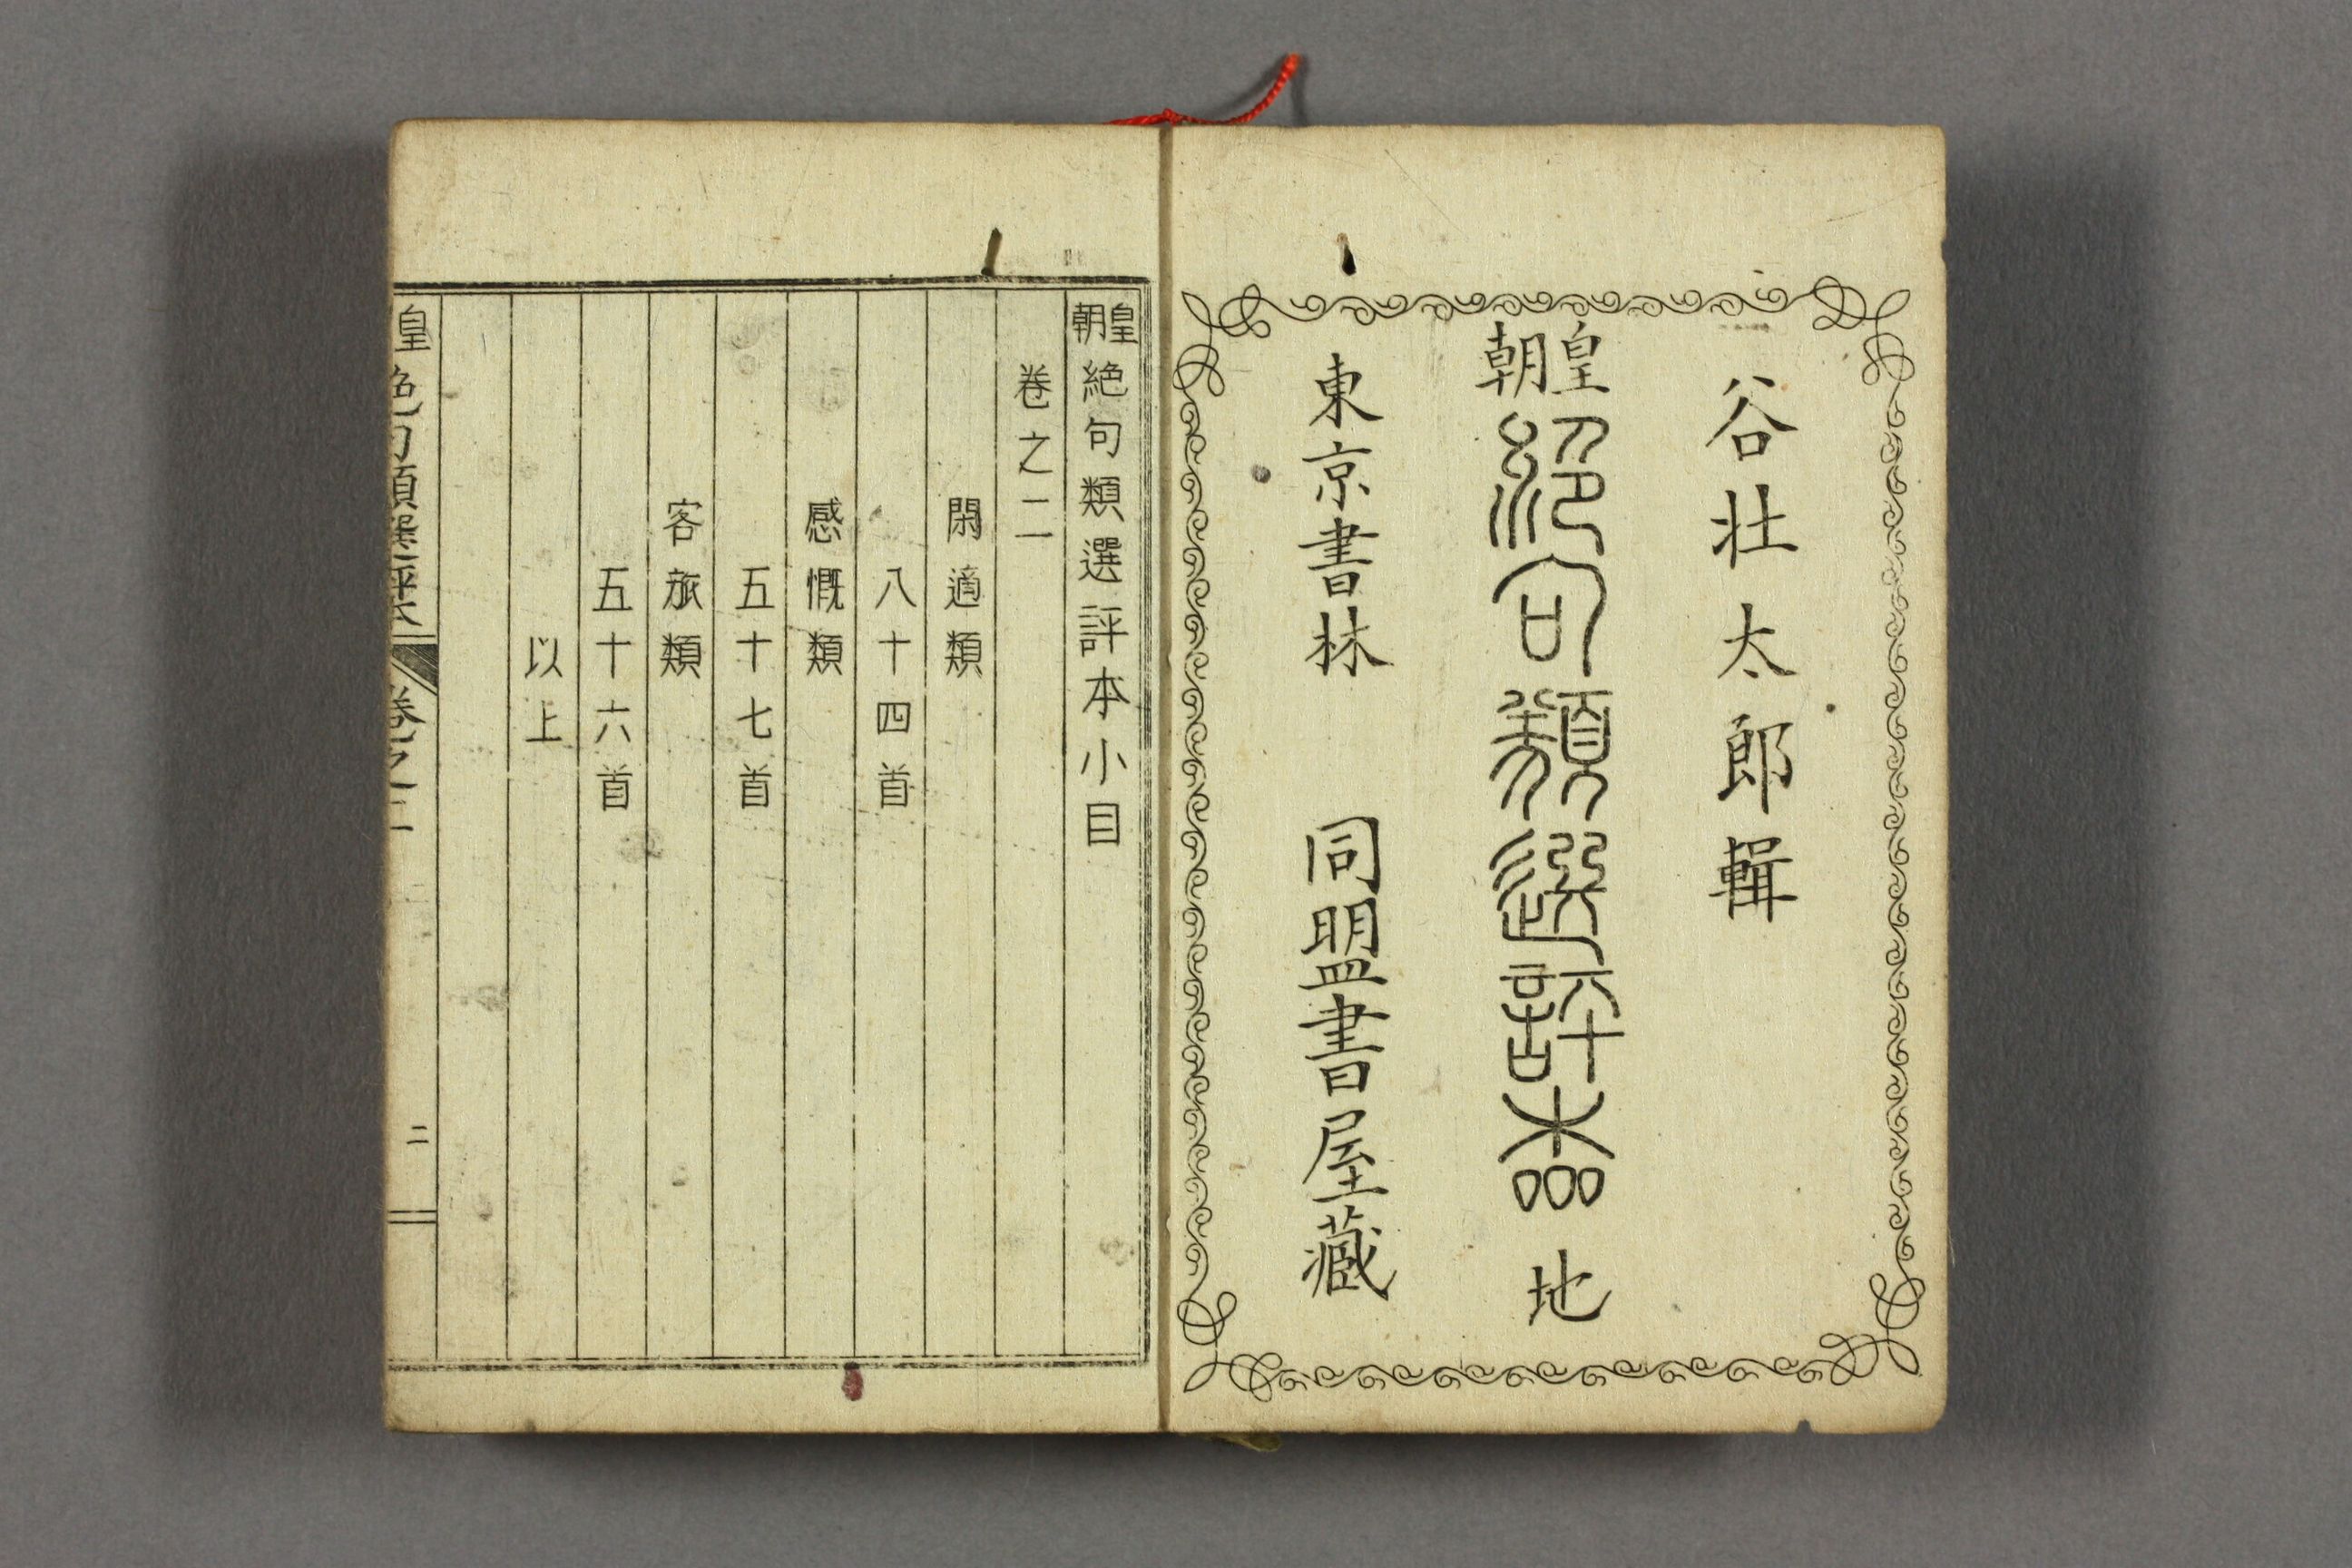 谷壯太郎輯
皇朝絕句類選評本 地
東京書林 同盟書屋藏
皇朝絶句類選評本小目
卷之二
閑適類
八十四首
感慨類
五十七首
客旅類
五十六首
以上
皇 絶句類選評本 卷之二 二